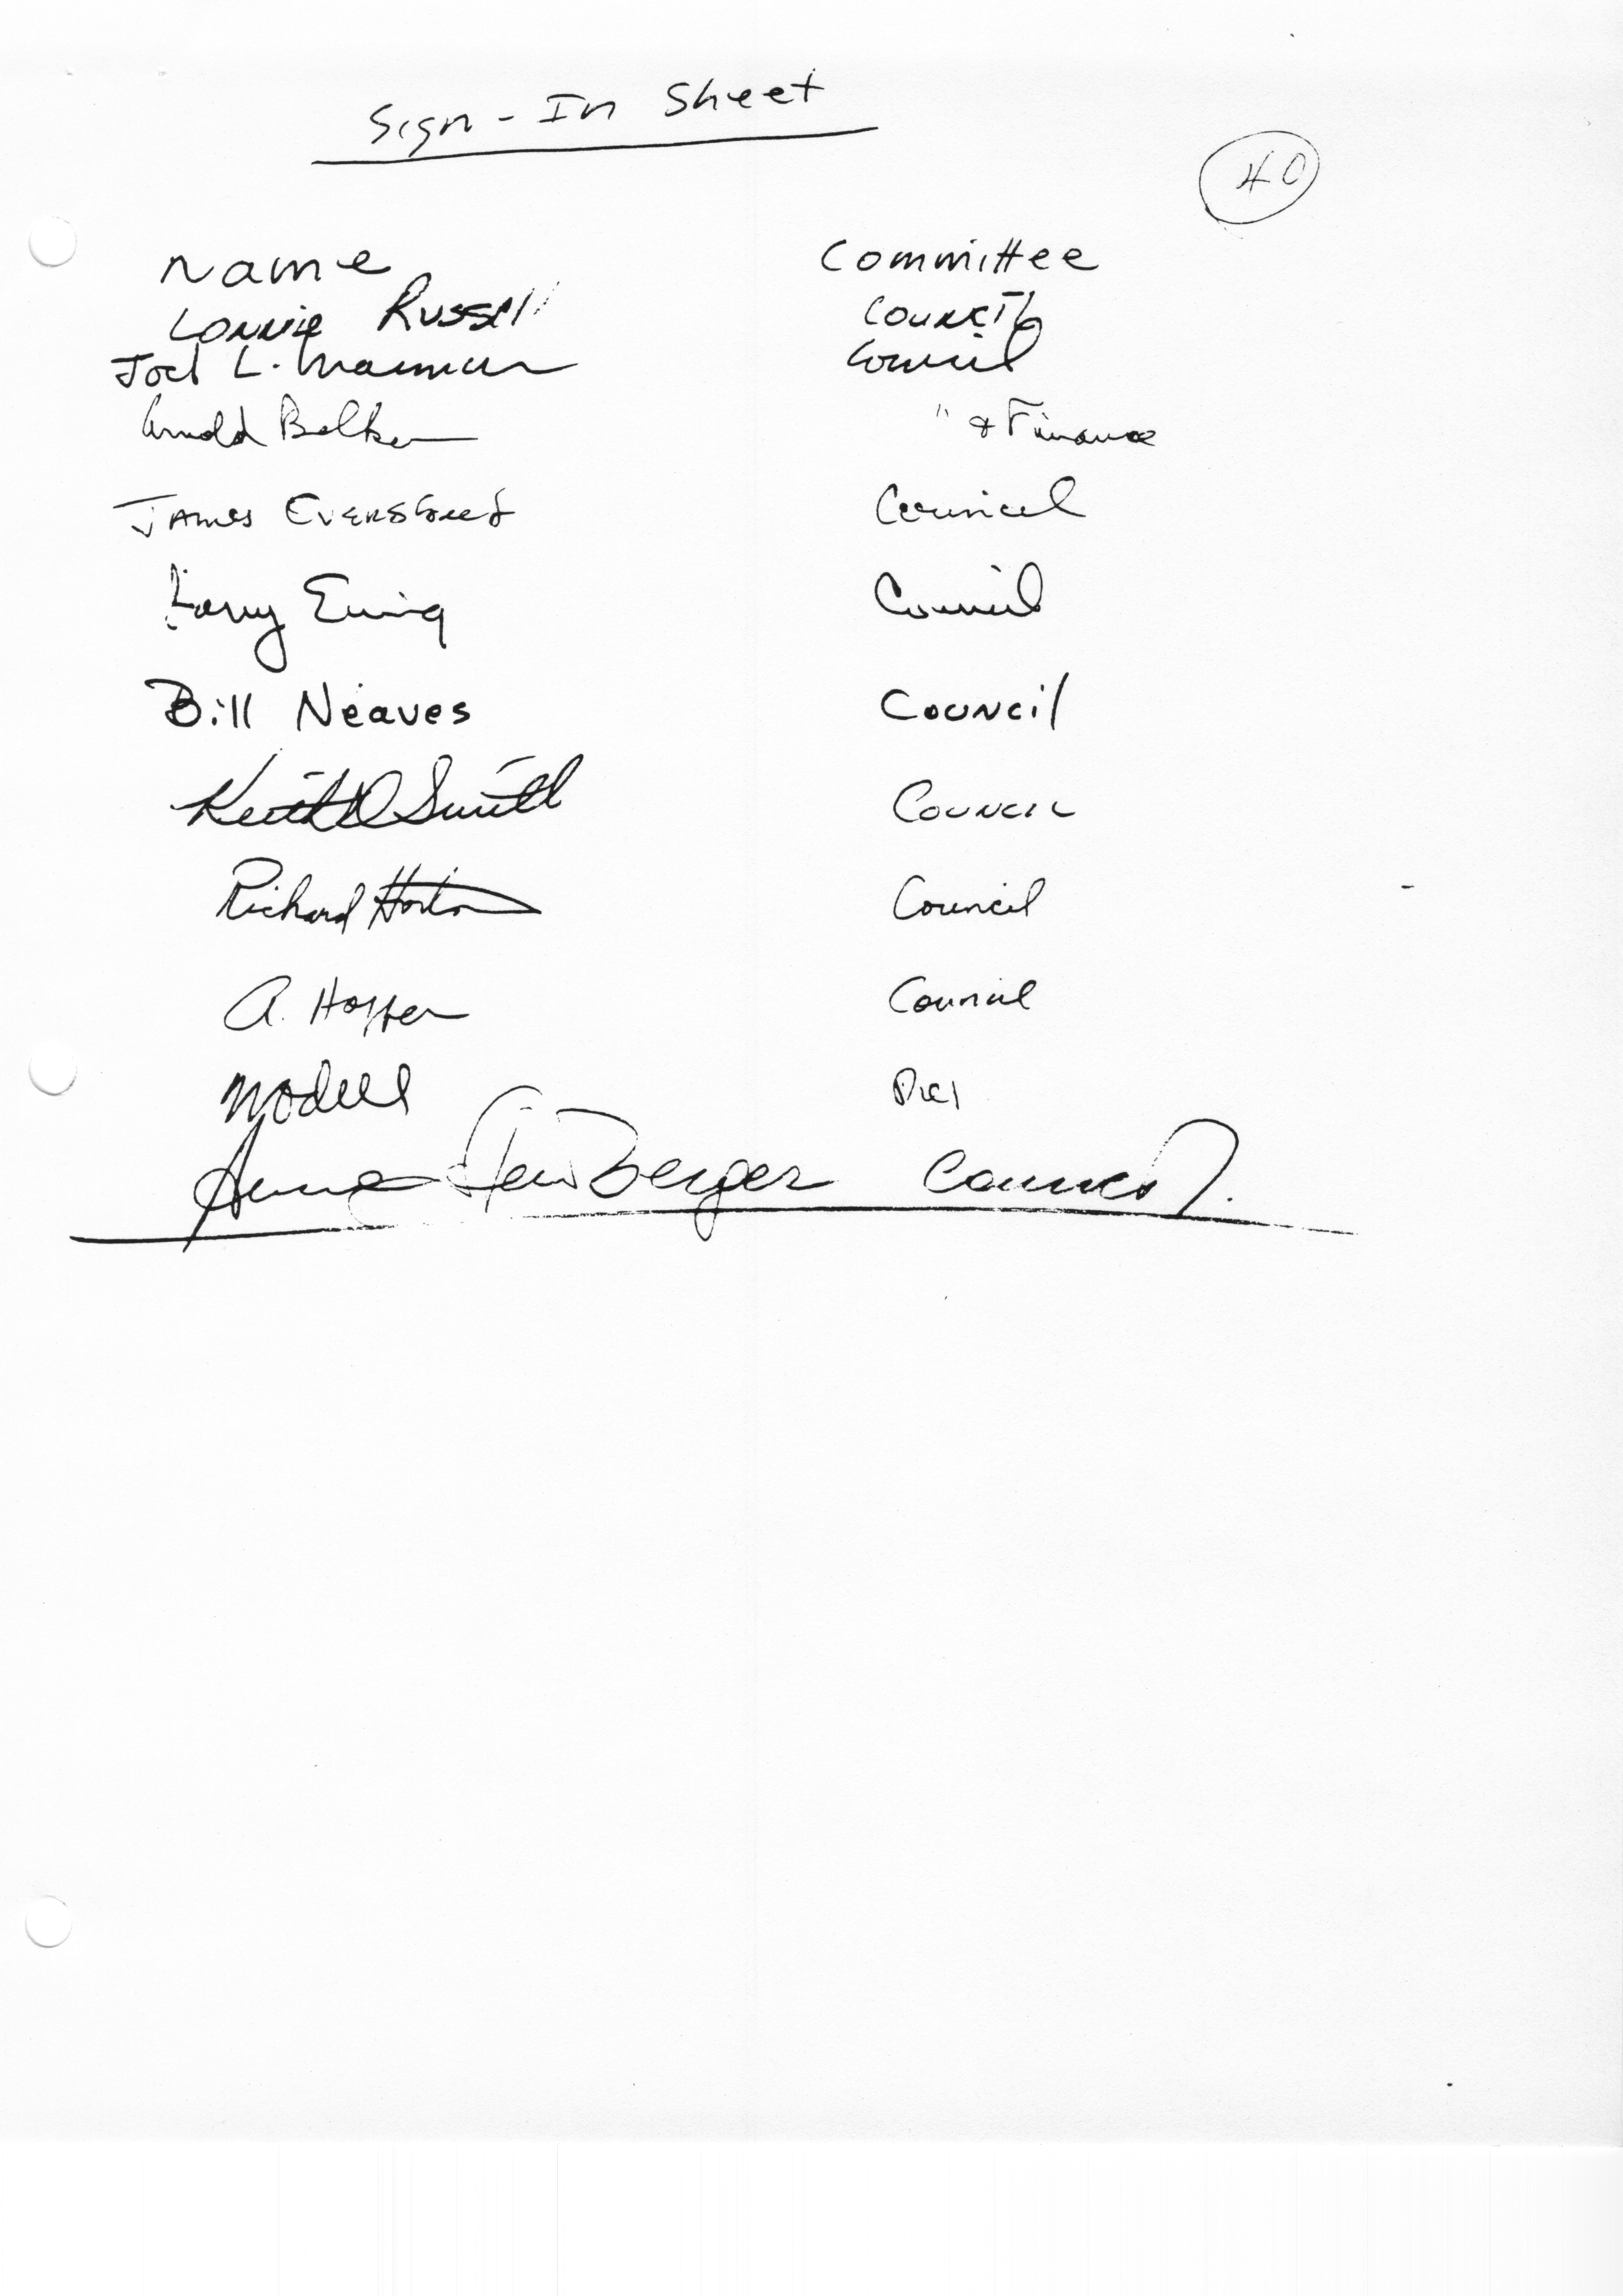 Sign-In Sheet
40
Name Committee
Lonnie Russell Council
Joel L. Council
Arnold Belker " & Finance
James Council
Larry Ewing Council
Bill Neaves Council
Keith D Smith Council
Richard Horton Council
A. Hoffer Council
Anne Council